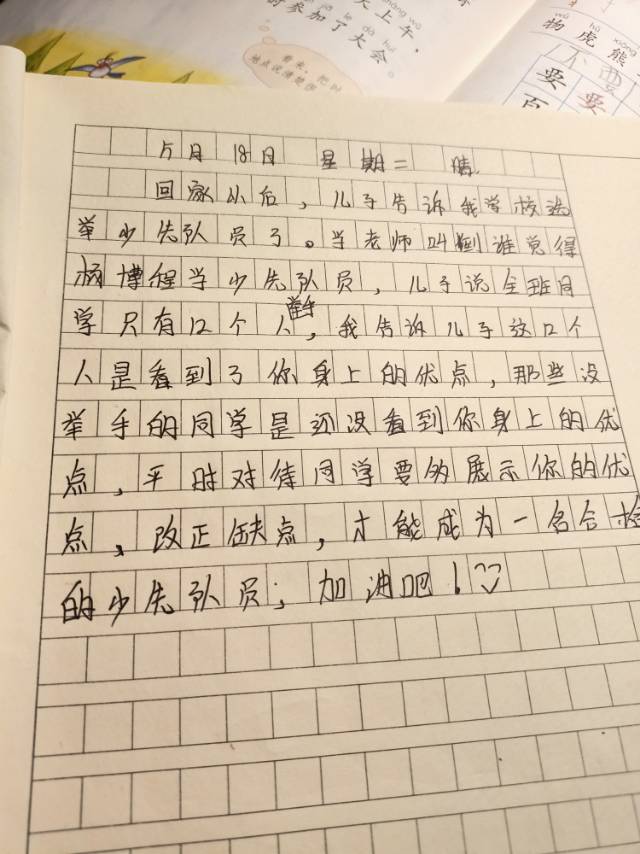 天上午，
时参加了大会
看未，把时
地点说清楚
物虎熊
不要
要要
百
5月18日 星期二 晴
回家以后，儿子告诉我学校选
举少先队员了。当老师叫到谁觉得
杨博程当少先队员，儿子说全班同
学只有12个人举手，我告诉儿子这12个
人是看到了你身上的优点，那些没
举手的同学是还没看到你身上的优
点，平时对待同学要多展示你的优
点、改正缺点，才能成为一名合格
的少先队员；加油吧！